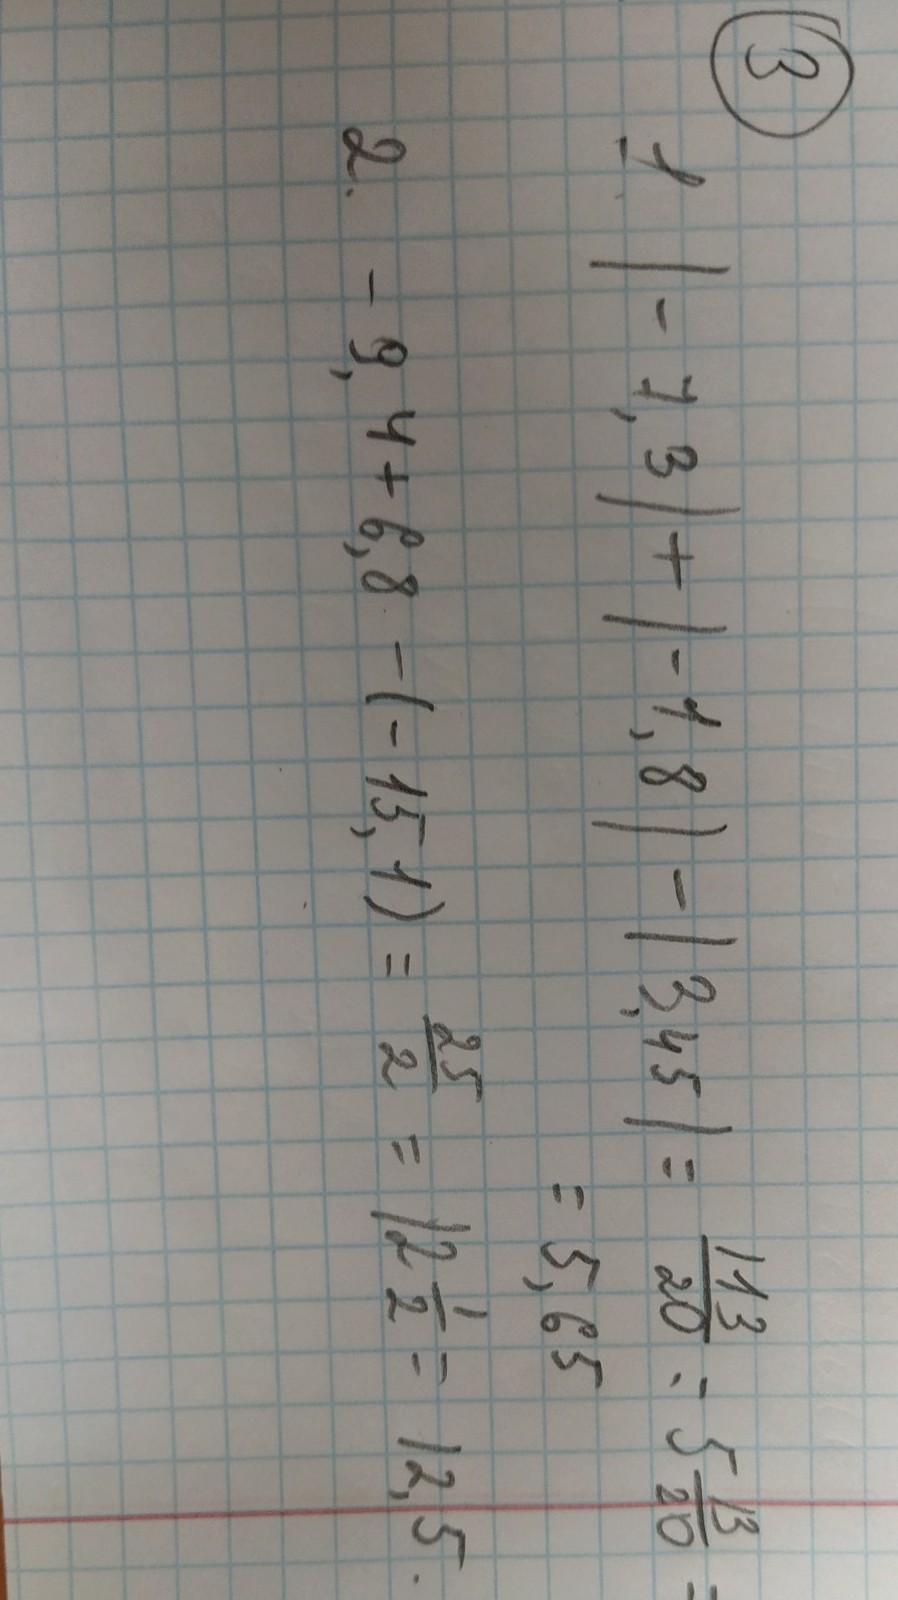 3
1. |-7,3|+|-1,8|-|3,45|= 113/20 = 5 13/20 =
= 5,65
2. -9,4+6,8-(-15,1)= 25/2 = 12 1/2 = 12,5.